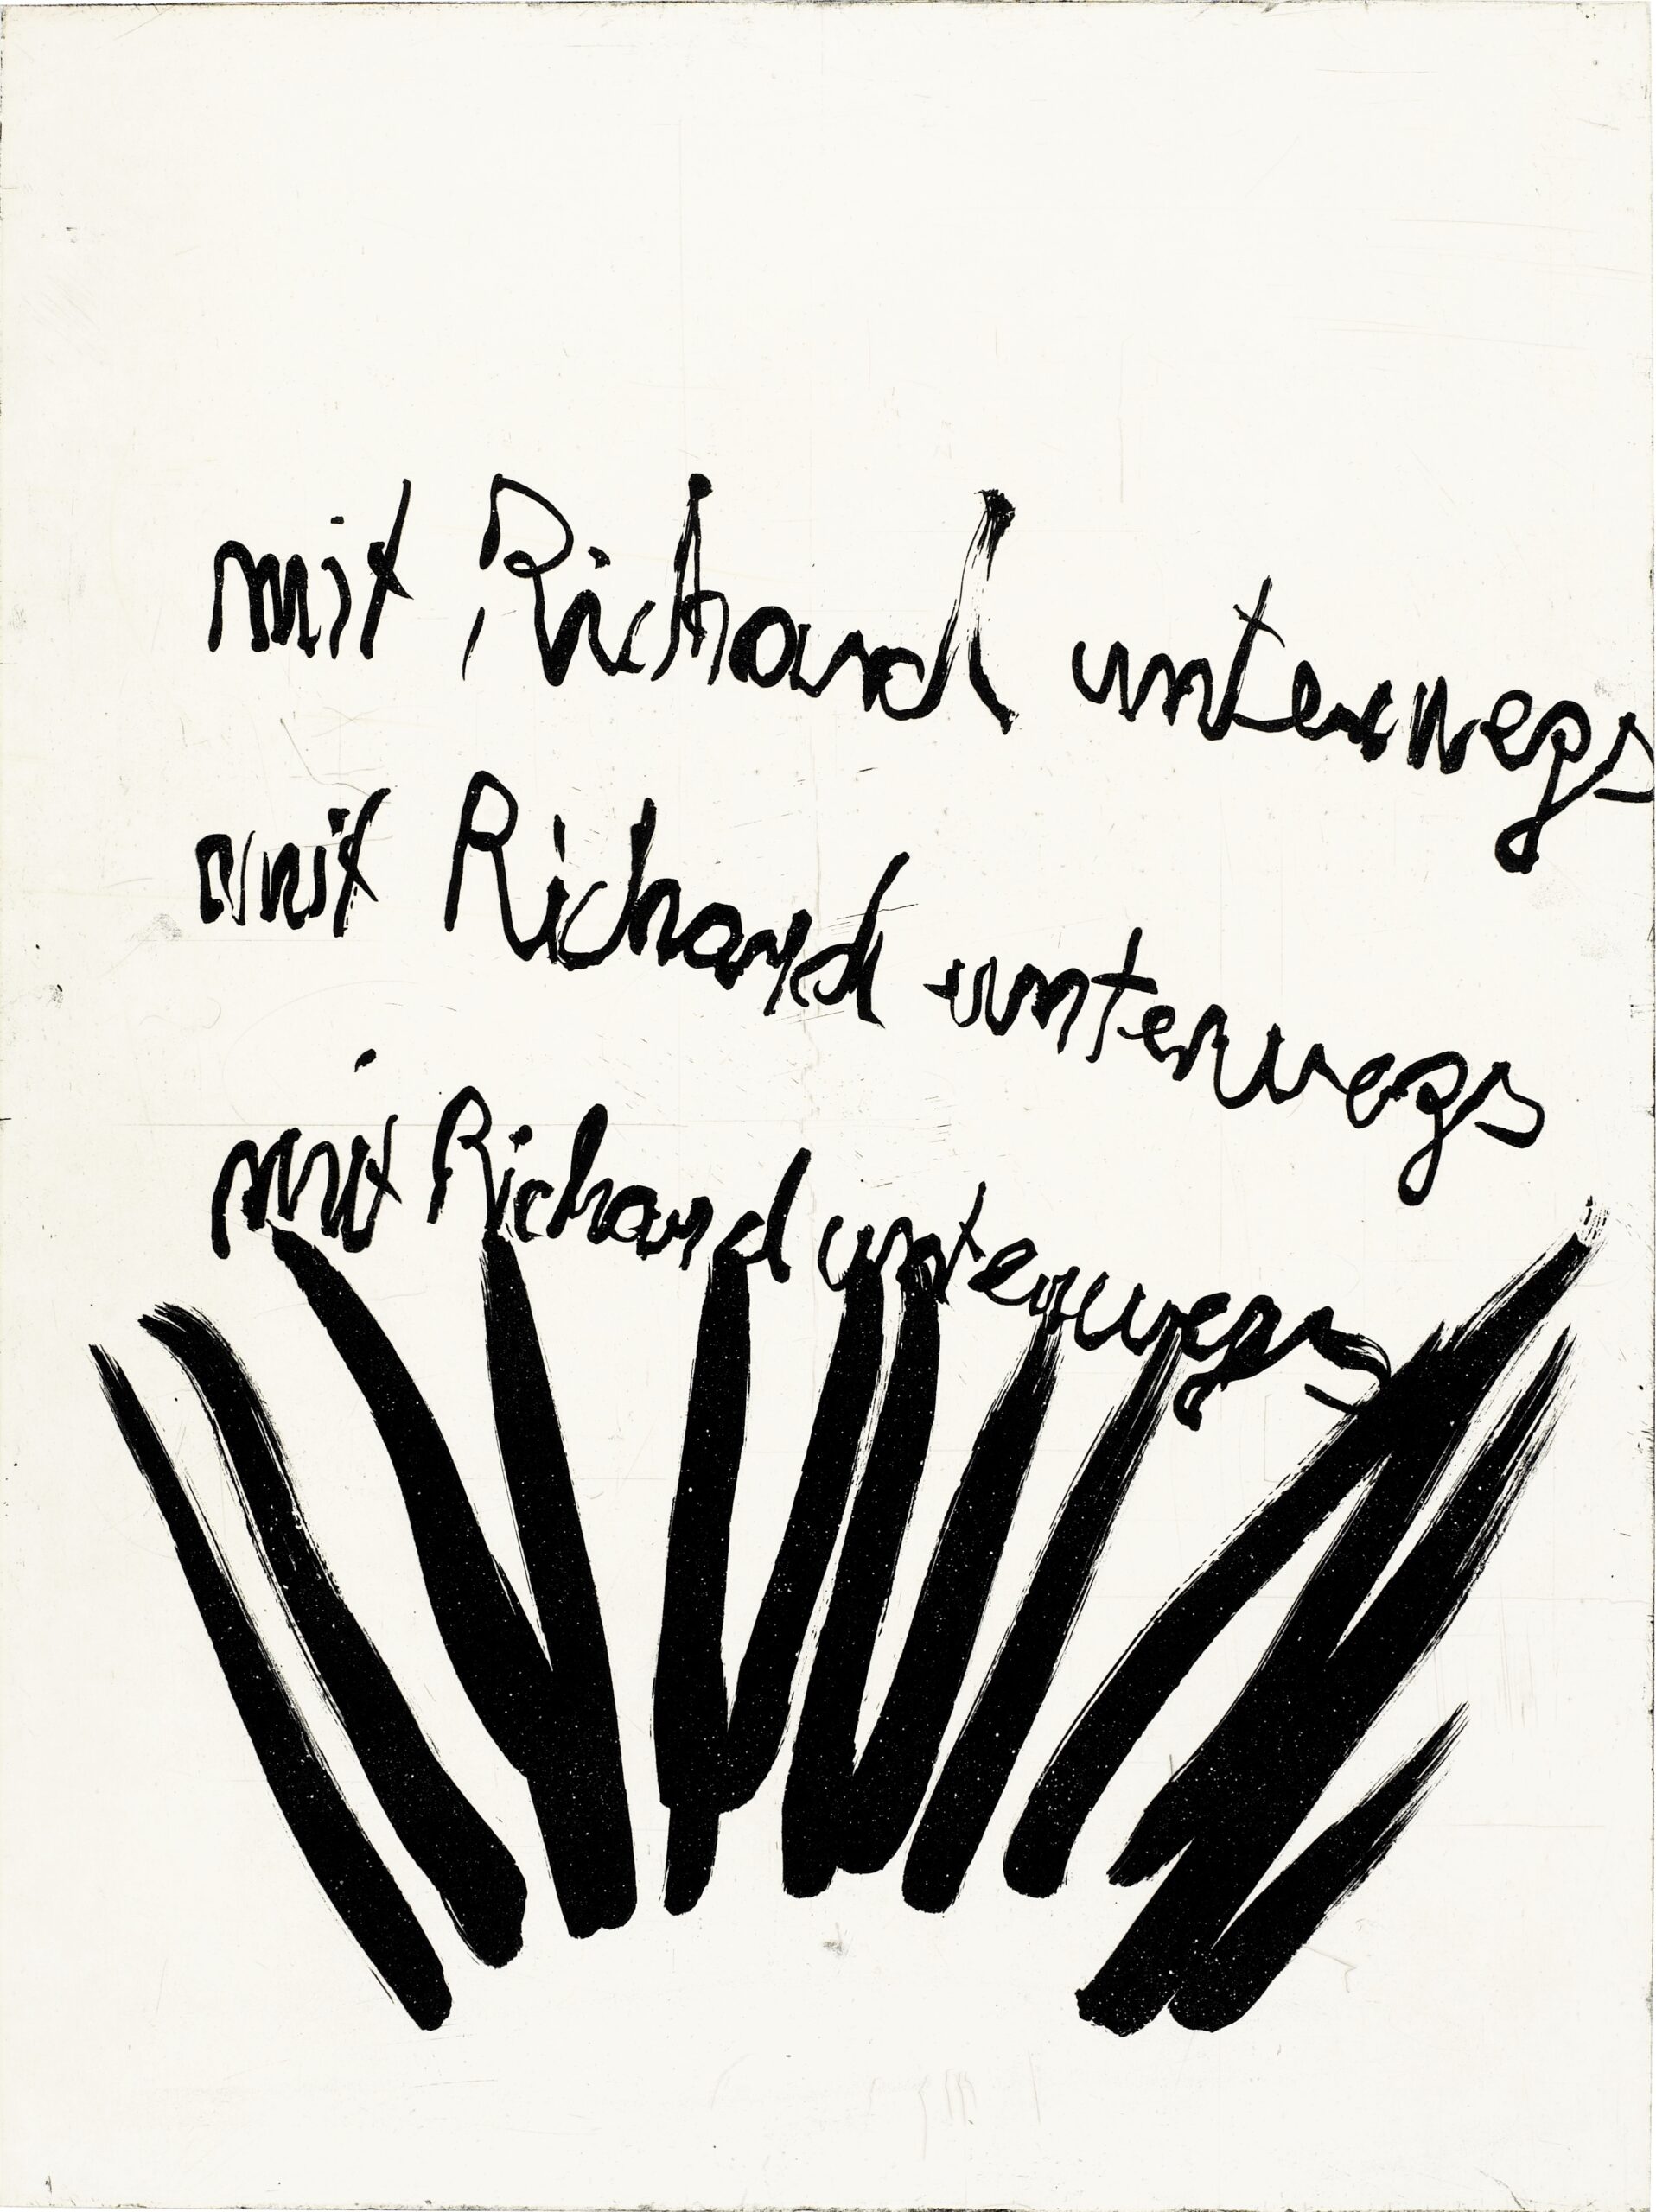 mit Richard unterwegs
mit Richard unterwegs
mit Richard unterwegs